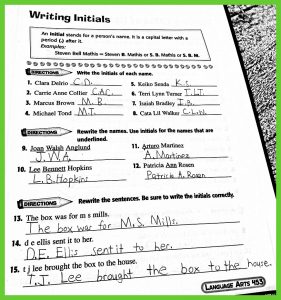 Writing Initials
An initial stands for a person's name. It is a capital letter with
a period (.) after it.
Examples:
Steven Bell Mathis = Steven B. Mathis or S. B. Mathis or S. B. M.
DIRECTIONS Write the initials of each name.
1. Clara Delrio C.D. 5. Keiko Senda K.S.
2. Carrie Anne Collier C.A.C. 6. Terri Lynn Turner T.L.T.
3. Marcus Brown M.B. 7. Isaiah Bradley I.B.
4. Michael Tond M.T. 8. Cata Lil Walker C.L.W.
DIRECTIONS Rewrite the names. Use initials for the names that are
underlined.
9. Joan Walsh Anglund 11. Arturo Martinez
J.W.A. A. Martinez
10. Lee Bennett Hopkins 12. Patricia Ann Rosen
L.B. Hopkins Patricia A. Rosen
DIRECTIONS Rewrite the sentences. Be sure to write the initials correctly.
13. The box was for m s mills.
The box was for M.S. Mills.
14. d e ellis sent it to her.
D.E. Ellis sent it to her.
15. t j lee brought the box to the house.
T.J. Lee brought the box to the house.
LANGUAGE ARTS 453